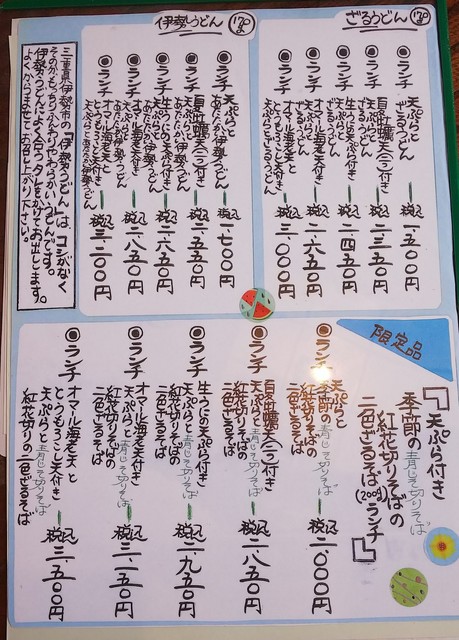 ざるうどん
◉ランチ
天ぷらと
ざるうどん
税込 一、五〇〇円
◉ランチ
夏牡蠣天(二ケ)付き
天ぷらと
ざるうどん
税込 二、三五〇円
◉ランチ
生うにの天ぷら付き
天ぷらと
ざるうどん
税込 二、四五〇円
◉ランチ
オマール海老天付き
天ぷらと
ざるうどん
税込 二、六五〇円
◉ランチ
オマール海老天と
とうもろこし天付き
天ぷらとざるうどん
税込 三、〇〇〇円
伊勢うどん
◉ランチ
天ぷらと
あたたかい伊勢うどん
税込 一、七〇〇円
◉ランチ
夏牡蠣天(二ケ)付き
天ぷらと
あたたかい伊勢うどん
税込 二、五五〇円
◉ランチ
生うにの天ぷら付き
天ぷらと
あたたかい伊勢うどん
税込 二、六五〇円
◉ランチ
オマール海老天付き
天ぷらと
あたたかい伊勢うどん
税込 二、八五〇円
◉ランチ
オマール海老天と
とうもろこし天付き
天ぷらとあたたかい伊勢うどん
税込 三、二〇〇円
三重県伊勢市の「伊勢うどん」は コシがなく
そのかわり もっちりふんわりやわらかいうどんです。
伊勢うどんによく合うタレをかけてお出しします。
よくからませてお召し上がり下さい。
限定品
『天ぷら付き
季節の青じそ切りそば
紅花切りそばの
二色ざるそば(200g)ランチ』
◉ランチ
天ぷらと
季節の青じそ切りそば
紅花切りそばの
二色ざるそば
税込 二、〇〇〇円
◉ランチ
夏牡蠣天(二ケ)付き
天ぷらと青じそ切りそば
紅花切りそばの
二色ざるそば
税込 二、八五〇円
◉ランチ
生うにの天ぷら付き
天ぷらと青じそ切りそば
紅花切りそばの
二色ざるそば
税込 二、九五〇円
◉ランチ
オマール海老天付き
天ぷらと青じそ切りそば
紅花切りそばの
二色ざるそば
税込 三、一五〇円
◉ランチ
オマール海老天と
とうもろこし天付き
天ぷらと青じそ切りそば
紅花切りの二色ざるそば
税込 三、五〇〇円